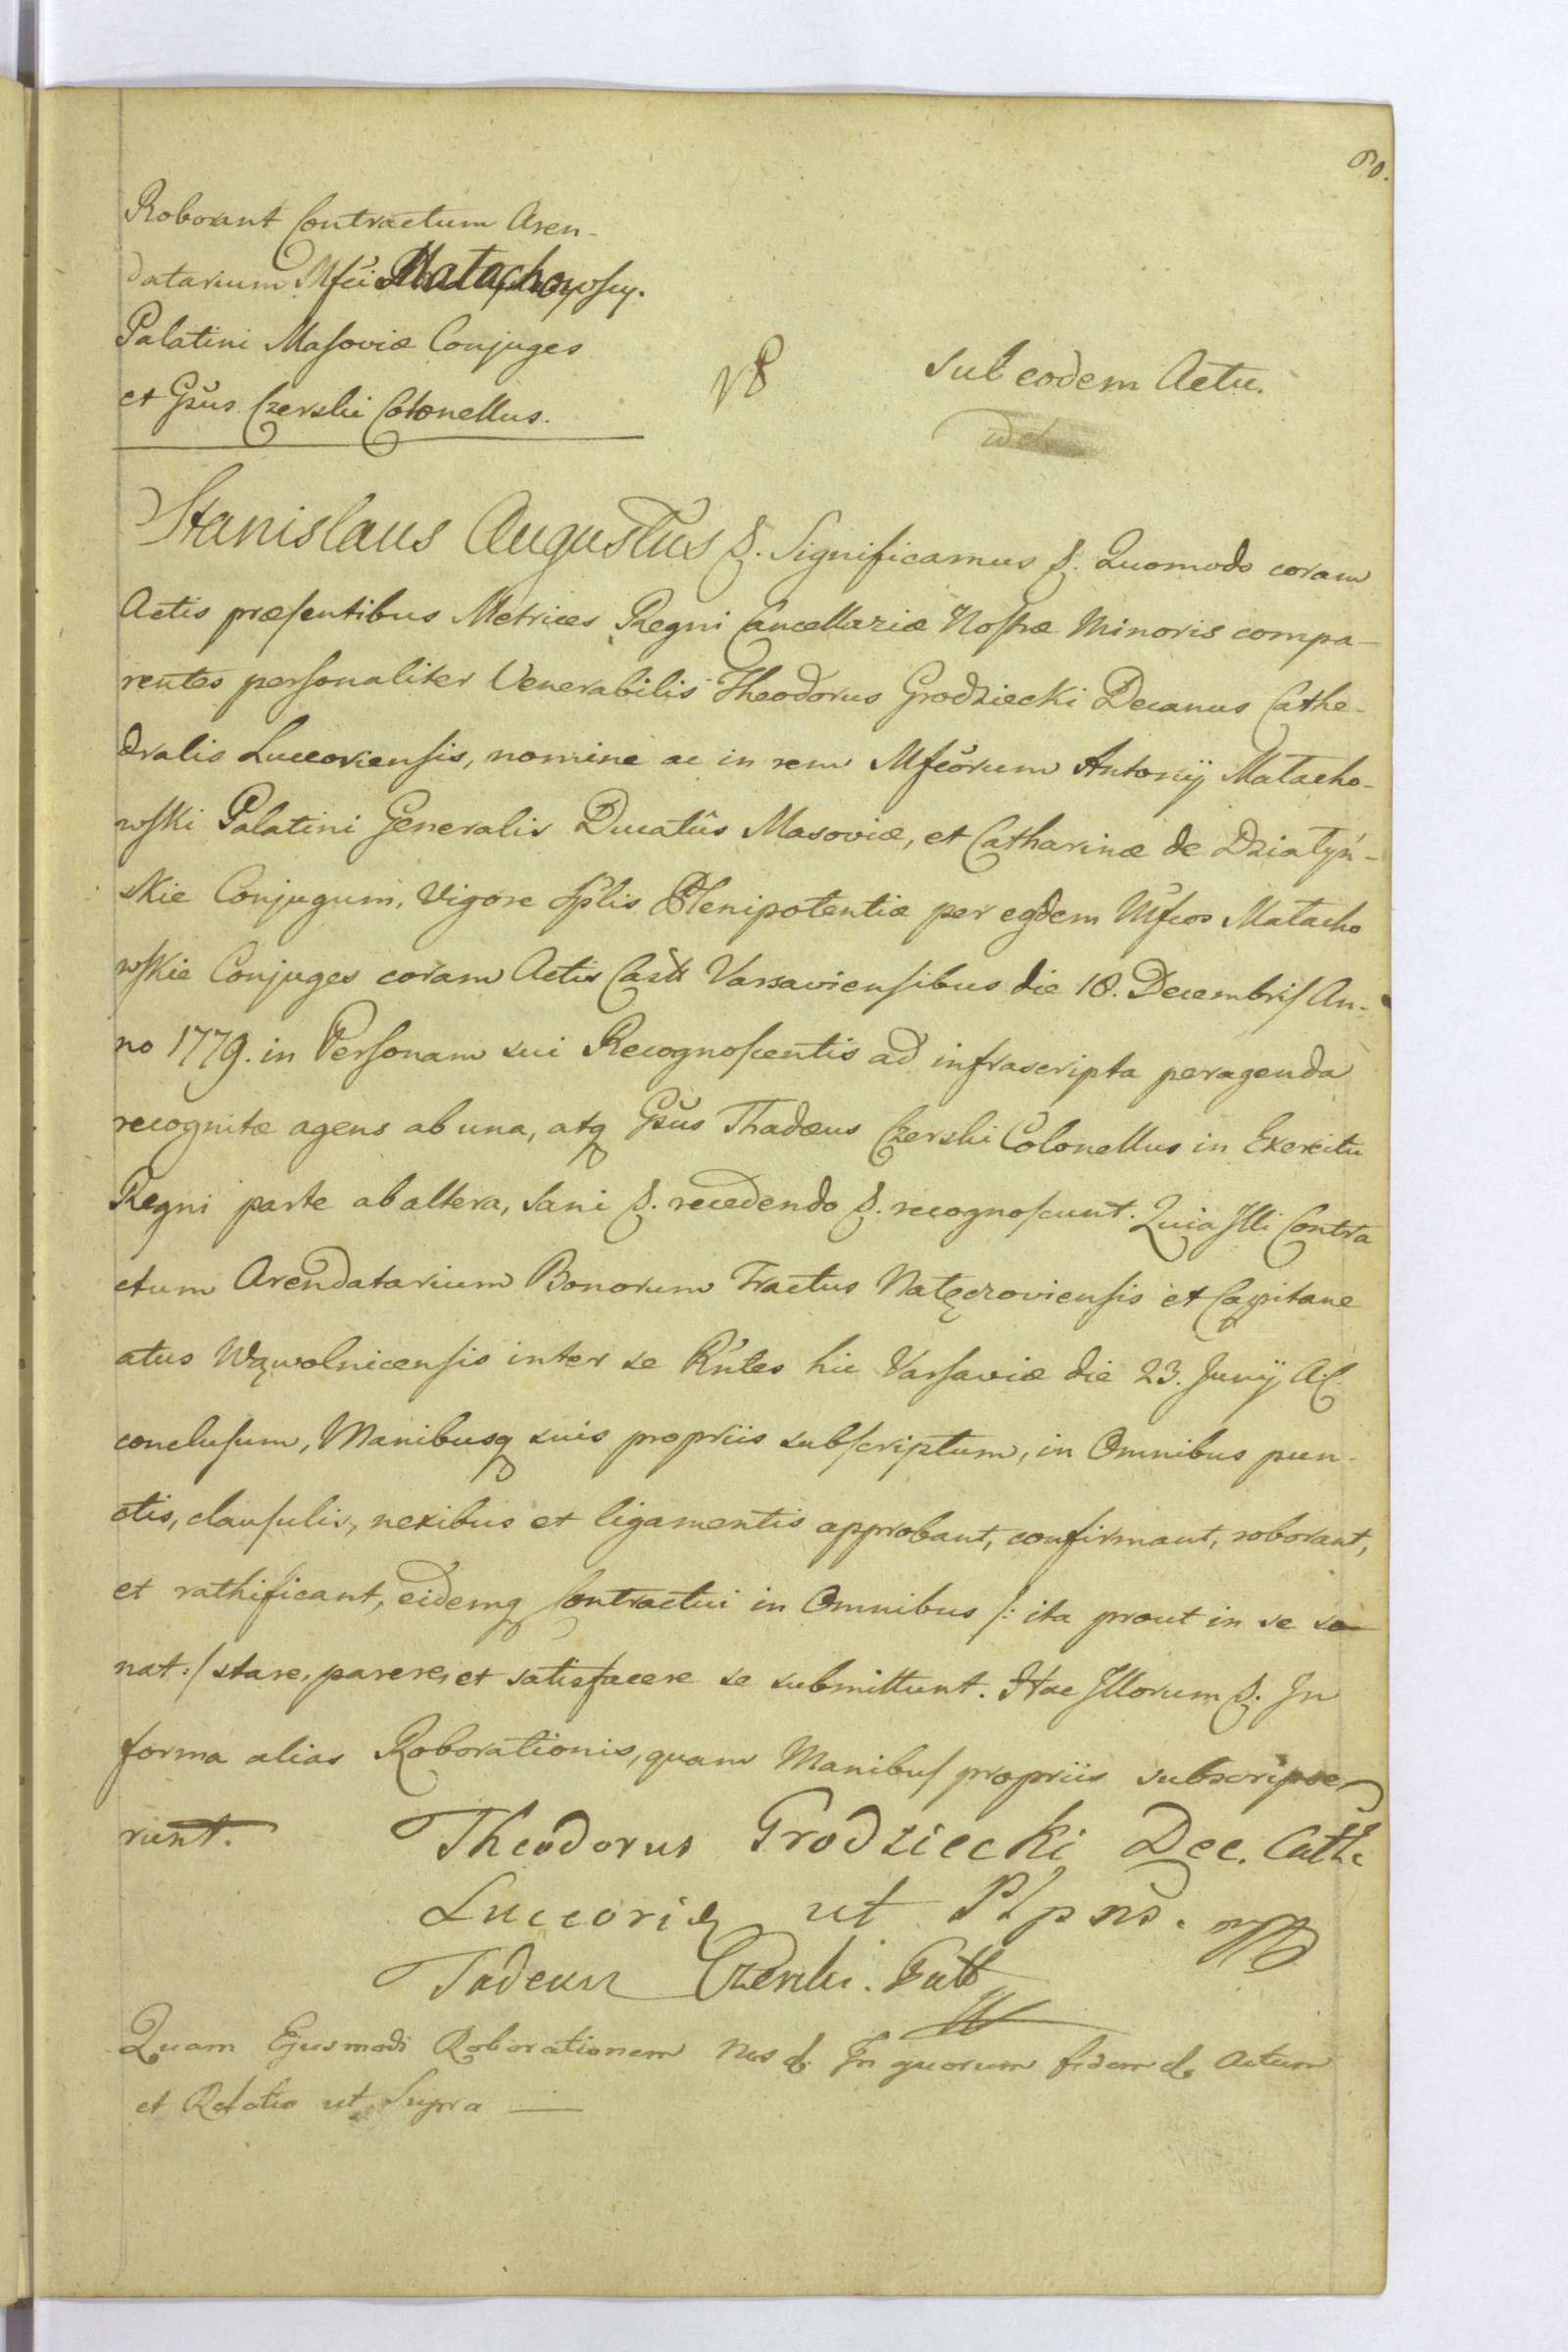 60.
Roborant Contractum Aren-
datarium Mfci Małachowscy.
Palatini Masoviæ Conjuges
et Gsus Czerski Colonellus.
sub eodem Actu.
Stanislaus Augustus &. Significamus &. Quomodo coram
Actis præsentibus Metrices Regni Cancellariæ Nostræ Minoris compa-
rentes personaliter Venerabilis Theodorus Grodziecki Decanus Cathe-
dralis Luceoriensis, nomine ac in rem Mfcorum Antonij Małacho-
wski Palatini Generalis Ducatûs Masoviæ, et Catharinæ de Działyń-
skie Conjugum, Vigore Splis Plenipotentiæ per eosdem Mfcos Małacho
wskie Conjuges coram Actis Castr Varsaviensibus die 18. Decembris An-
no 1779. in Personam sui Recognoscentis ad infrascripta peragenda
recognitæ agens ab una, atq Gsus Thadæus Czerski Colonellus in Exercitu
Regni parte ab altera, Sani &. recedendo &. recognoscunt. Quia Illi Contra
ctum Arendatarium Bonorum Tractus Natęczoviensis et Capitane
atus Wąwolnicensis inter se Rntes hic Varsaviæ die 23. Junij A.C.
conclusum, Manibusq suis propriis subscriptum, in Omnibus pun-
ctis, clausulis, nexibus et ligamentis approbant, confirmant, roborant,
et rathificant, eidemq Contractui in Omnibus /: ita prout in se so
nat :/ stare, parere, et satisfacere se submittunt. Hac Illorum &. In
forma alias Roborationis, quam Manibus propriis subscripse
runt.
Theodorus Grodziecki Dec. Cath.
Luceorien ut Plpns.
Tadeusz Czerski.
Quam Ejusmodi Roborationem Nos &. In quorum fidem &. Actum
et Relatio ut Supra